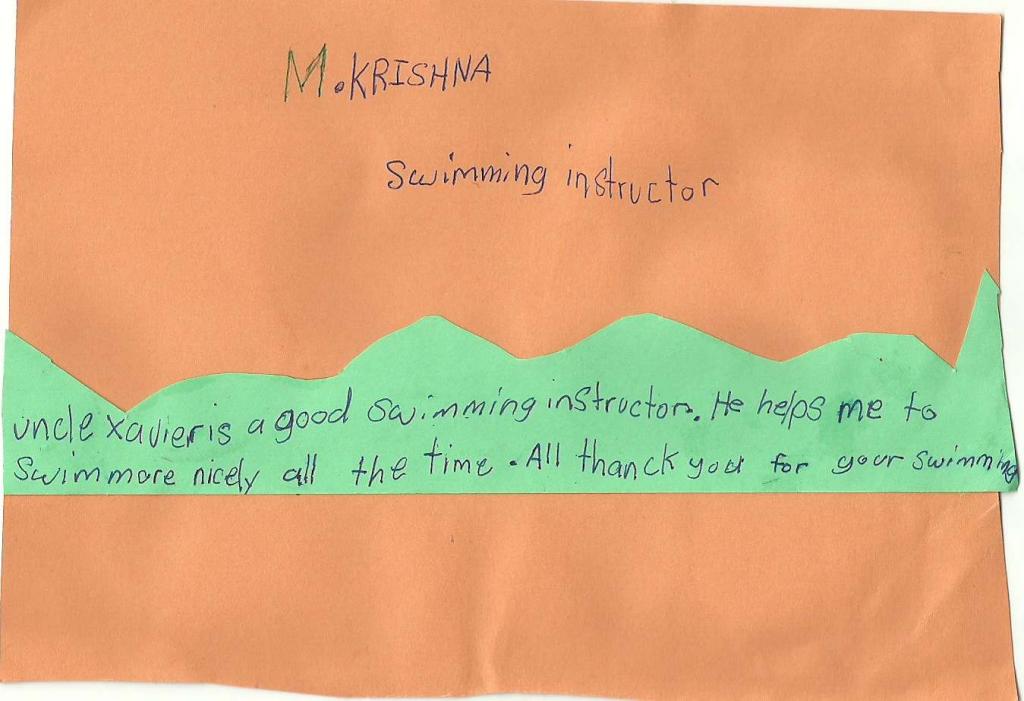 M.KRISHNA
Swimming instructor
uncle xavier is a good swimming instructor. He helps me to
swim more nicely all the time. All thanck you for your swimming